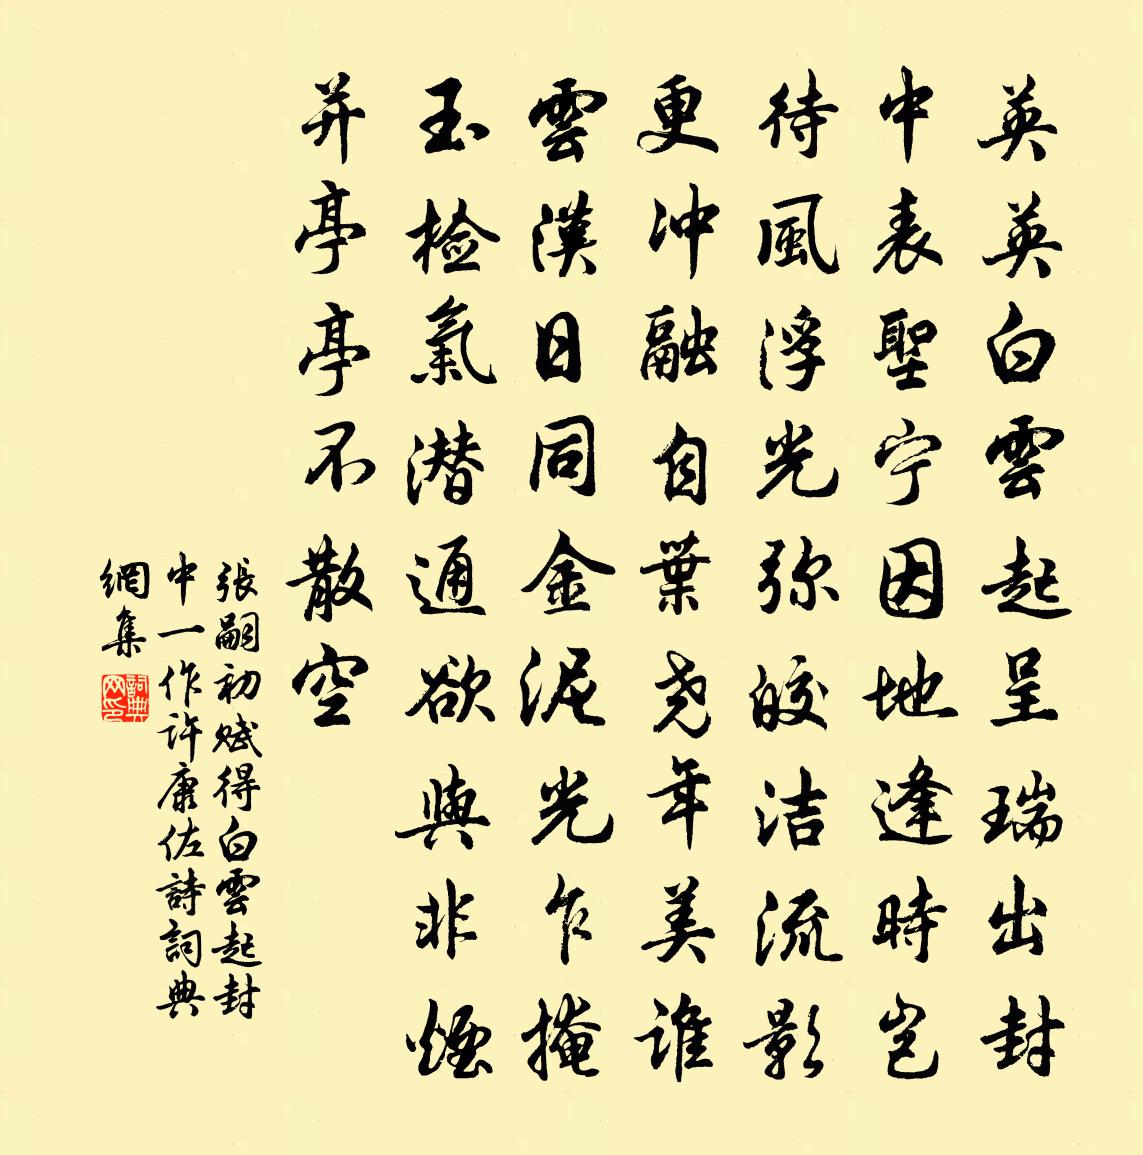 英英白雲起呈瑞出封
中表聖宁因地逢時岂
待風浮光弥皎洁流影
更冲融自葉尧年美谁
雲漢日同金泥光乍掩
玉检氣潜通欲與非煙
并亭亭不散空
張嗣初赋得白雲起封
中一作许康佐詩詞典
網集
詞典
网印